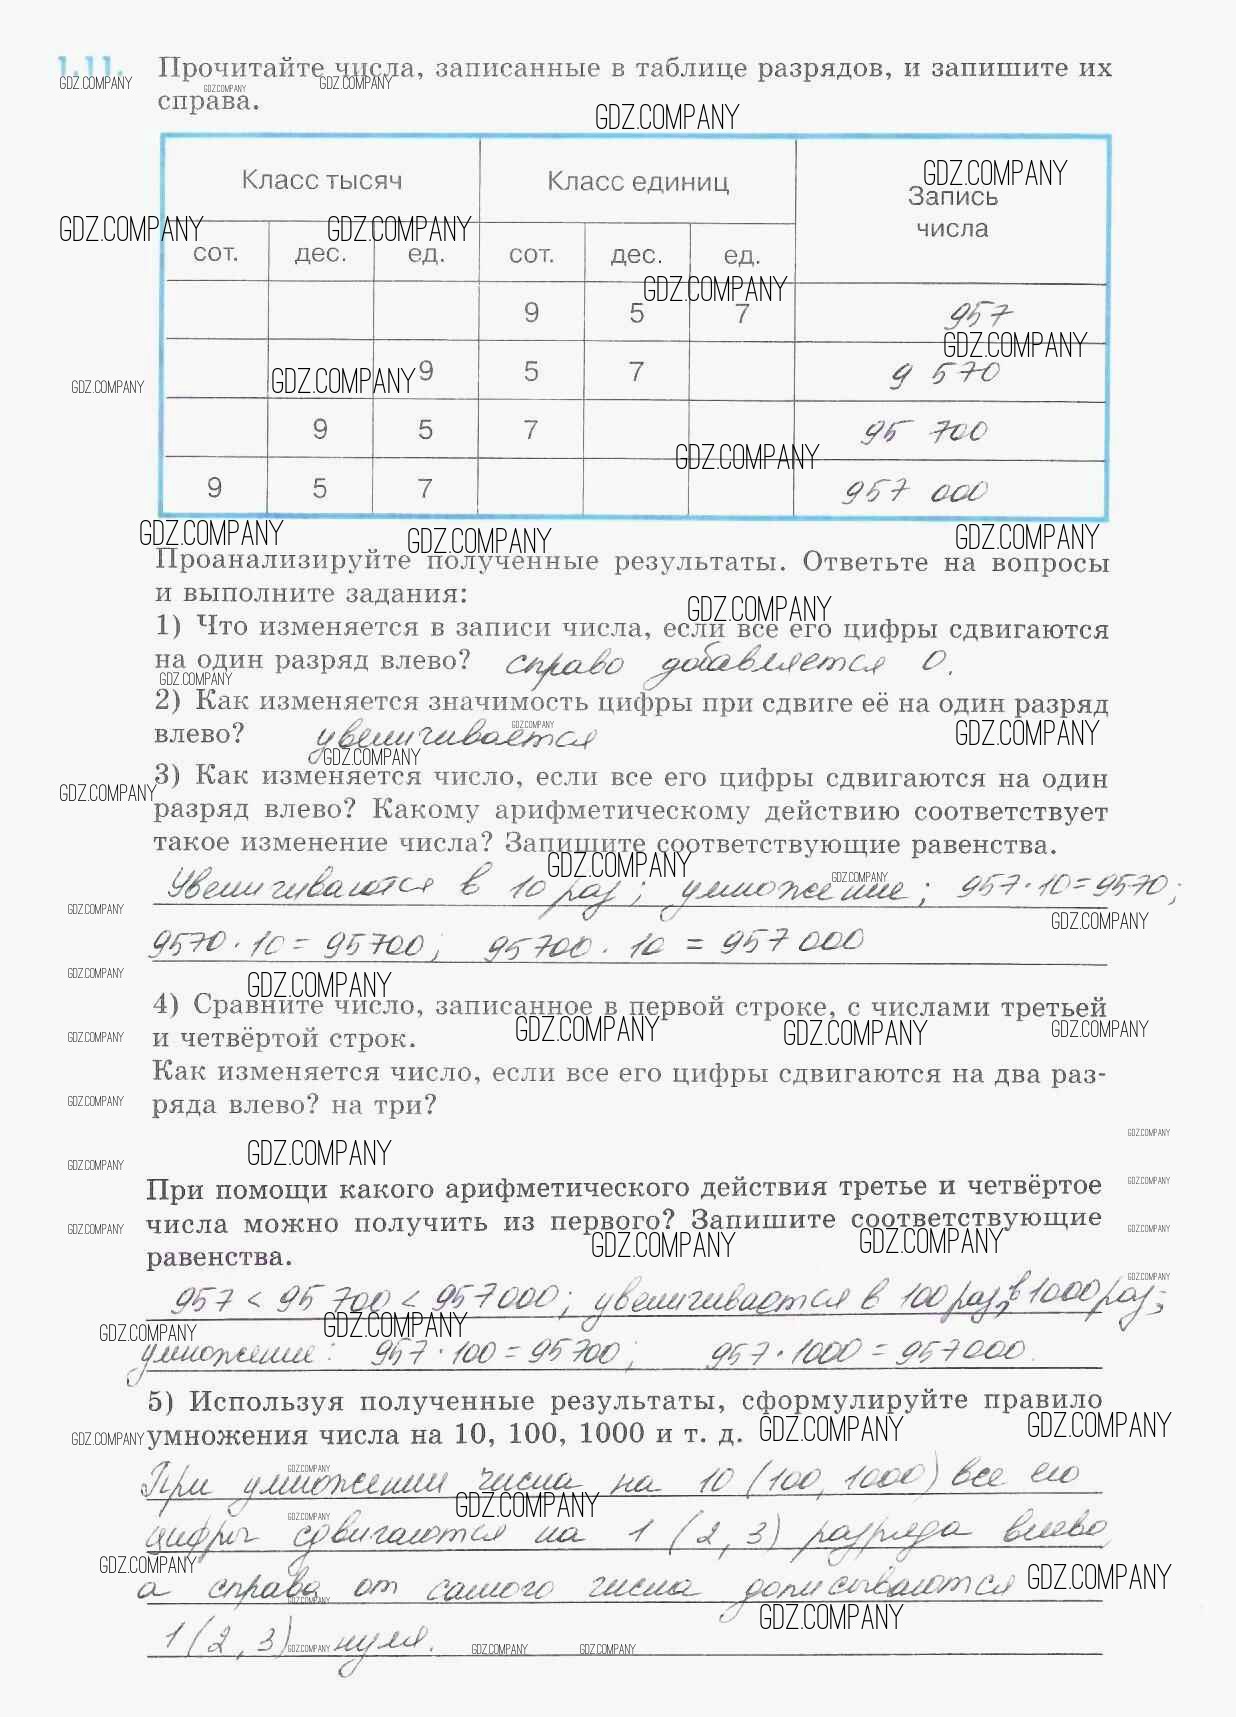 1.11. Прочитайте числа, записанные в таблице разрядов, и запишите их
справа.
Класс тысяч Класс единиц Запись числа
сот. дес. ед. сот. дес. ед.
9 5 7 957
9 5 7 9 570
9 5 7 95 700
9 5 7 957 000
Проанализируйте полученные результаты. Ответьте на вопросы
и выполните задания:
1) Что изменяется в записи числа, если все его цифры сдвигаются
на один разряд влево? справо добавляется 0.
2) Как изменяется значимость цифры при сдвиге её на один разряд
влево? увеличивается
3) Как изменяется число, если все его цифры сдвигаются на один
разряд влево? Какому арифметическому действию соответствует
такое изменение числа? Запишите соответствующие равенства.
Увеличиваются в 10 раз; умножение; 957·10=9570;
9570·10=95700; 95700·10=957000
4) Сравните число, записанное в первой строке, с числами третьей
и четвёртой строк.
Как изменяется число, если все его цифры сдвигаются на два раз-
ряда влево? на три?
При помощи какого арифметического действия третье и четвёртое
числа можно получить из первого? Запишите соответствующие
равенства.
957 < 95 700 < 957000; увеличивается в 100 раз, в 1000 раз;
умножение: 957·100=95700; 957·1000=957000.
5) Используя полученные результаты, сформулируйте правило
умножения числа на 10, 100, 1000 и т. д.
При умножении числа на 10 (100, 1000) все его
цифры сдвигаются на 1 (2, 3) разряда влево
а справа от самого числа дописываются
1 (2, 3) нуля.
GDZ.COMPANY